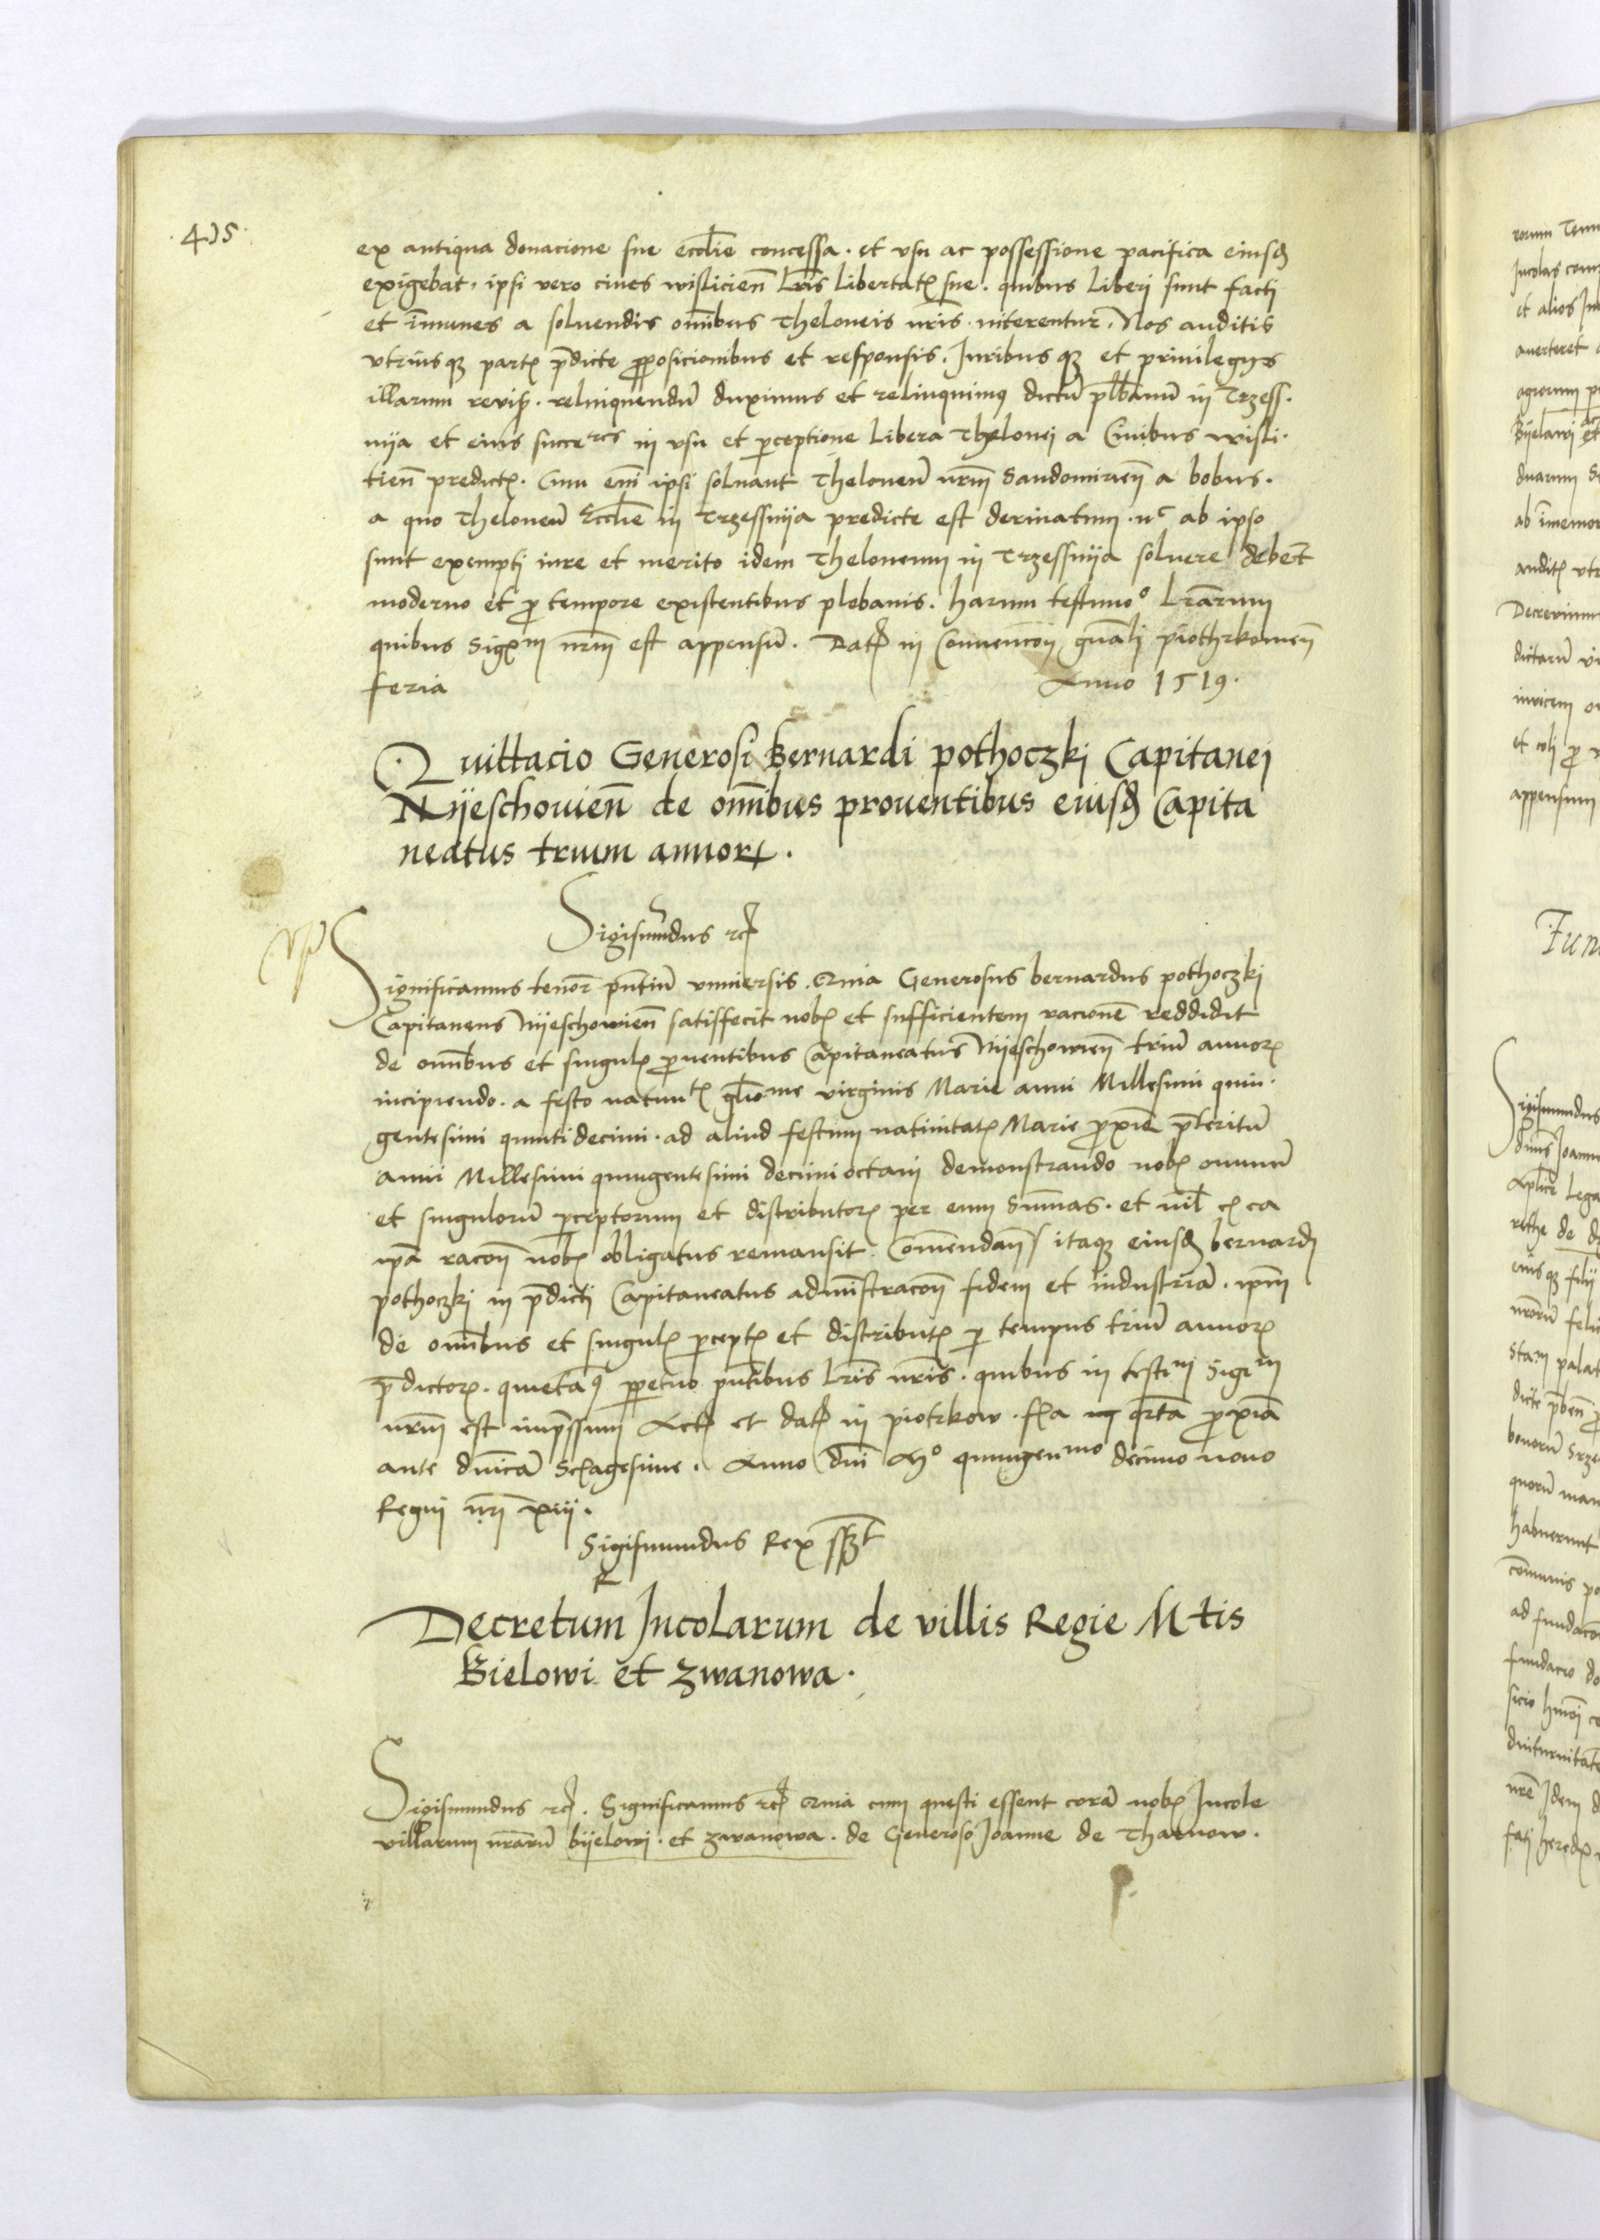 ·435·
ex antiqua donacione sue eccl̄ie concessa. et vsu ac possessione pacifica eiusd
exigebat. ipsi vero ciues wislicien̄ Lr̄is Libertatꝭ sue. quibus Liberi sunt facti
et īmunes a soluendis om̄ibus Theloneis nr̄is. niterentur. Nos auditis
vtriusqꝫ partꝭ p̄dicte ꝓposicionibus et responsis. Juribusqꝫ et priuilegijs
illarum revisis. relinquendū duximus et relinquimꝰ dictū pl̄banū in Trzess.
nija et eius succeres in vsu et ꝑceptione Libera Thelonei a Ciuibus wisli.
tien̄ predictꝭ. Cum em̄ ipsi soluant Theloneū nr̄m Sandomirien̄ a bobus.
a quo Theloneū Eccl̄ie in Trzessnija predicte est deriuatum. nc ab ipso
sunt exempti iure et merito idem Theloneum in Trzessnija soluere debent
moderno et ꝓ tempore existentibus plebanis. Harum testimoo Lr̄arum
quibus Sigꝭm nr̄m est appensū. Datꝭ in Conuencōn gn̄ali piothrkouien̄
feria Anno 1519.
Quittacio Generosi Bernardi pothoczki Capitanei
Nijeschouien̄ de om̄ibus prouentibus eiusd Capita
neatus trium annorꝝ.
Sigismundus rcꝭ
Significamus tenōr pn̄tiū vniuersis. Quia Generosus bernardus pothoczki
Capitaneus Nijeschowien̄ satisfecit nobꝭ et sufficientem racionē reddidit
de om̄ibus et singulꝭ ꝓuentibus Capitaneatus Nijeschowien̄ triū annorꝭ
incipiendo. a festo natiuitꝭ gl̄iome virginis Marie anni Millesimi quin.
gentesimi quintidecimi. ad aliud festum natiuitatꝭ Marie ꝓxīe p̄teritū
anni Millesimi quingentesimi decimioctaui demonstrando nobꝭ omniū
et singulorū ꝑceptorum et distributorꝭ per eum Sum̄as. et nil̄ eꝭ ea
ip̄a racōn nobꝭ obligatus remansit. Com̄endan̄ itaqꝫ eiusd bernardi
pothoczki in p̄dicti Capitaneatus administracōn fidem et industriā. ip̄m
de om̄ibus et singulꝭ ꝑceptꝭ et distributꝭ ꝑ tempus triū annorꝭ
p̄dictorꝭ. quietamꝰ ꝑpetuo pn̄tibus Lr̄is nr̄is. quibus in testim Sigim
nr̄m est imp̄ssum Actꝭ et datꝭ in piotrkow. fꝭa qr̄ta ꝓxīa
ante dn̄icā Sexagesime. Anno dn̄i Mo quingenmo decimo nono
Regni nr̄i xiij.
Sigismundus Rex sszt
Decretum Incolarum de villis Regie Mtis
Bielowi et zwanowa.
Sigismundus rcꝭ. Significamus rcꝭ Quia cum questi essent corā nobꝭ Incole
villarum nr̄arū bijelowi. et zwanowa. de Generoso Joanne de Tharnow.